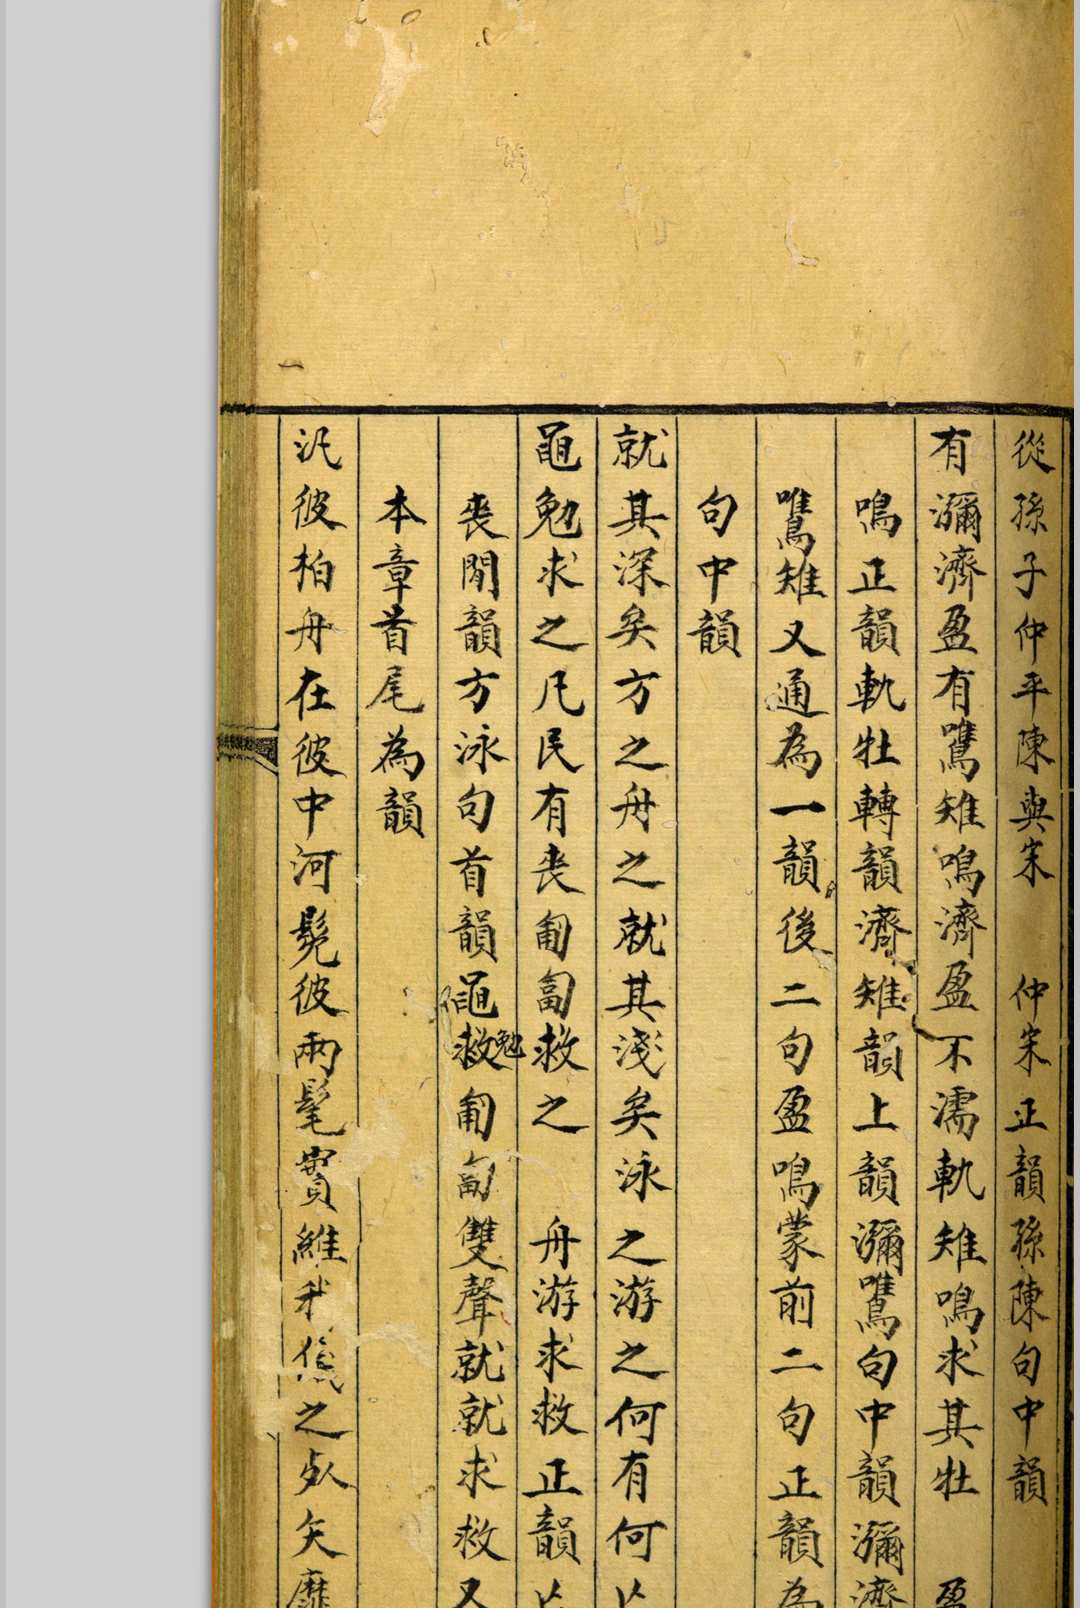 從孫子仲平陳與宋　仲宋正韻孫陳句中韻
有瀰濟盈有鷕雉鳴濟盈不濡軌雉鳴求其牡　盈
鳴正韻軌牡轉韻濟雉韻上韻瀰鷕句中韻瀰濟
鷕雉又通為一韻後二句盈鳴蒙前二句正韻為
句中韻
就其深矣方之舟之就其淺矣泳之游之何有何
黽勉求之凡民有喪匍匐救之　舟游求救正韻
喪閒韻方泳句首韻黽勉救匍匐雙聲就就求救又
本章首尾為韻
汎彼柏舟在彼中河髡彼兩髦實維我儀之死矢靡